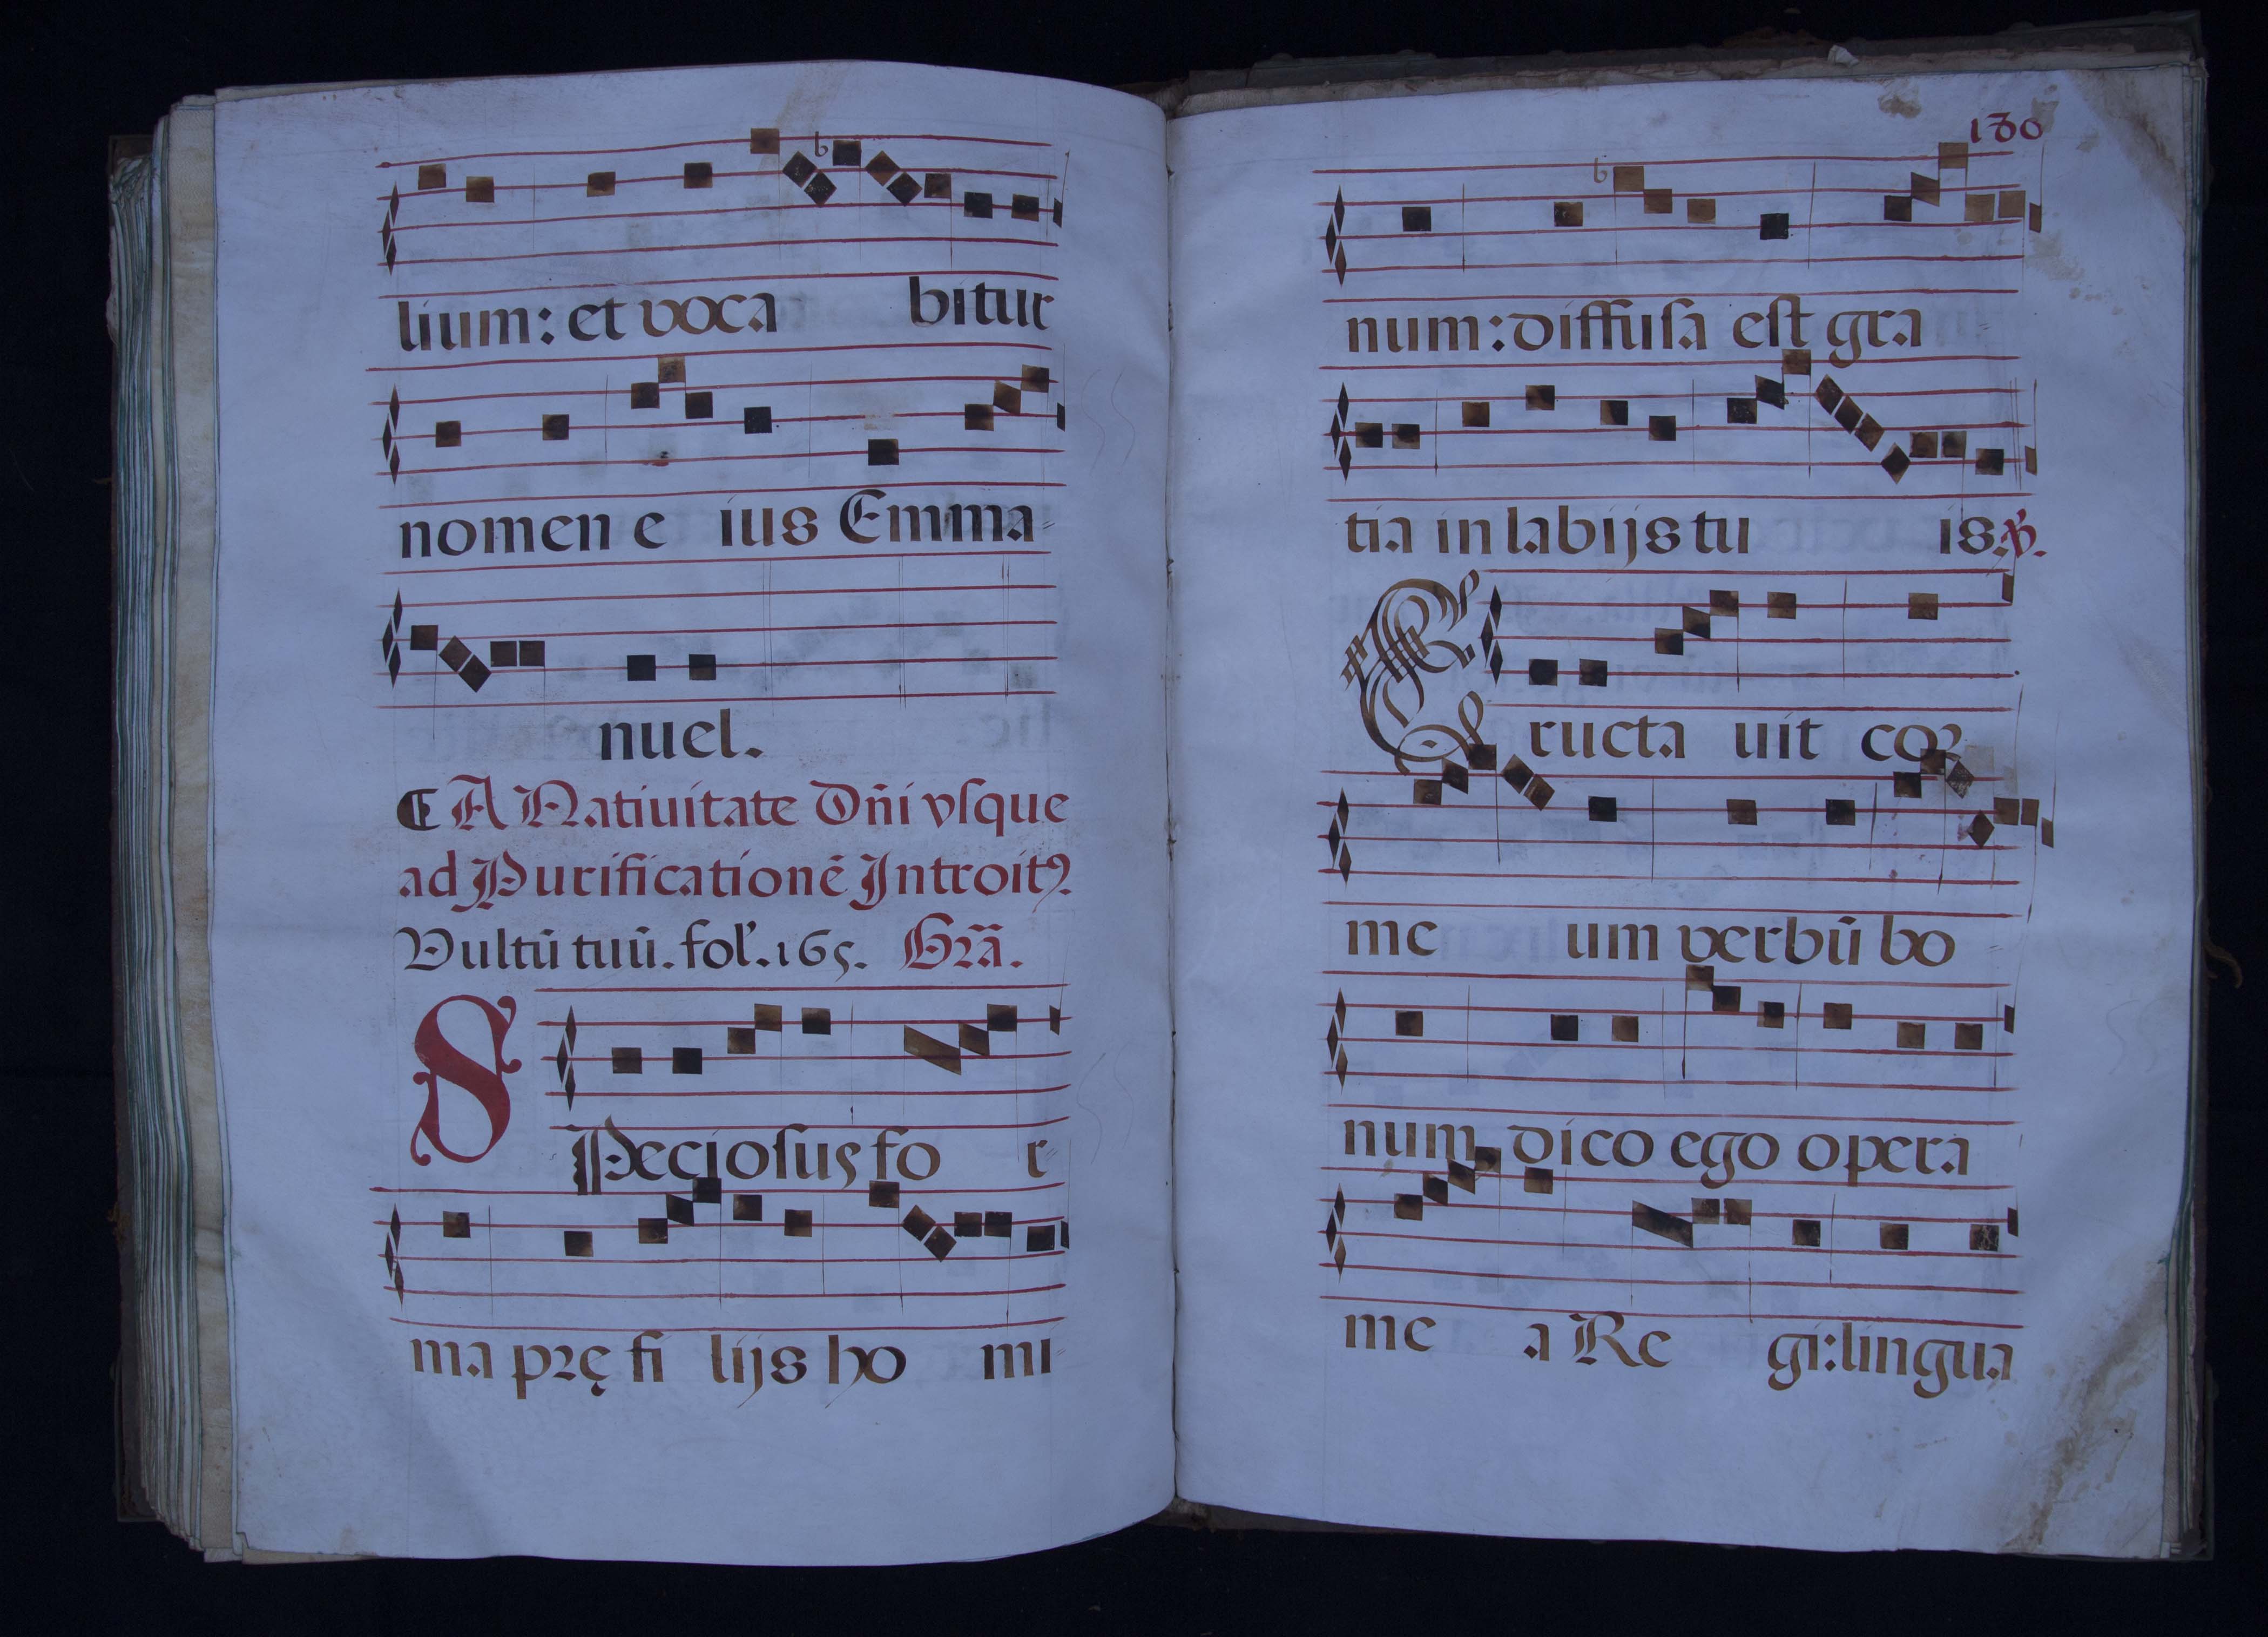 lium: et voca bitur
nomen e ius Emma
nuel.
A Natiuitate Dn̄i vſque
ad Purificationē Introitꝰ
Vultū tuū. fol. 165. Gra̅.
SPecioſus fo r
ma prę fi lijs ho mi
180
num: diffuſa eſt gra
tia in labijs tu is. ℣.
Eructa uit cor
me um verbū bo
num dico ego opera
me a Re gi: lingua